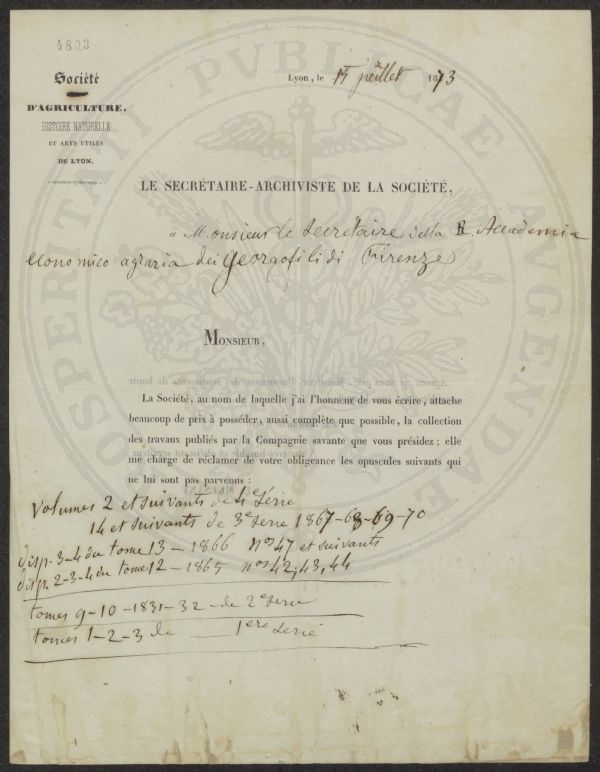 4803
Société
D'AGRICULTURE,
HISTOIRE NATURELLE
ET ARTS UTILES
DE LYON.
Lyon, le 15 juillet 1873
LE SECRÉTAIRE-ARCHIVISTE DE LA SOCIÉTÉ,
à Monsieur le Secretaire della R. Accademia
economico agraria dei georgofili di Firenze
MONSIEUR,
La Société, au nom de laquelle j'ai l'honneur de vous écrire, attache
beaucoup de prix à posséder, aussi complète que possible, la collection
des travaux publiés par la Compagnie savante que vous présidez; elle
me charge de réclamer de votre obligeance les opuscules suivants qui
ne lui sont pas parvenus :
Volumes 2 et suivants de 4e Série
14 et suivants de 3e serie 1867-68-69-70
disp. 3-4 du tome 13 - 1866 nos 47 et suivants
disp. 2-3-4 du tome 12 - 1865 nos 42, 43, 44
tomes 9-10-1831-32 - de 2e serie
tomes 1-2-3 de 1ere Serie
PROSPERITATI PVBLICAE AVGENDAE